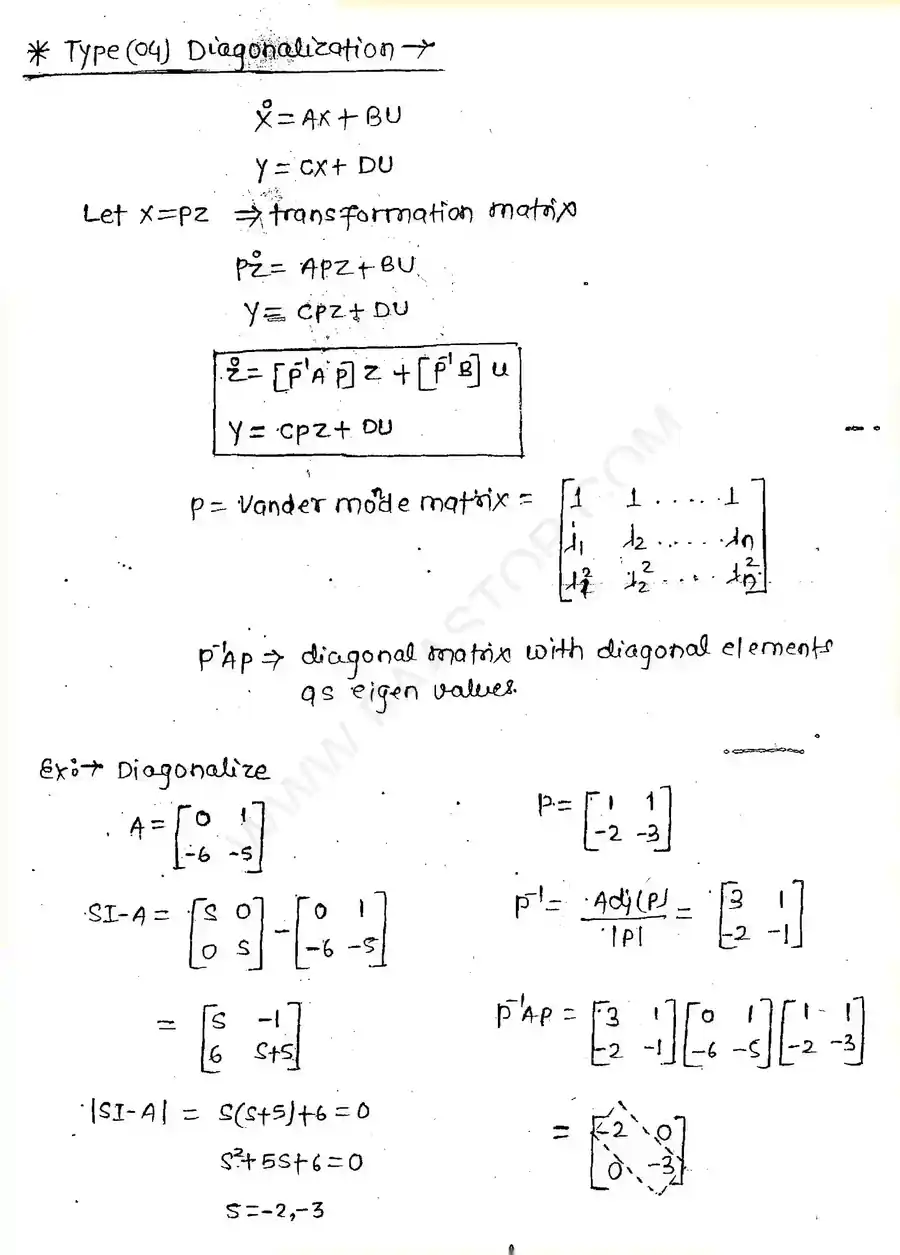 * Type(04) Diagonalization →
Ẋ = AX + BU
Y = CX + DU
Let X=PZ ⇒ transformation matrix
PŻ = APZ + BU
Y = CPZ + DU
Ż = [P⁻¹A P] Z + [P⁻¹B] U
Y = CPZ + DU
P = Vander monde matrix = [1 1 ..... 1
λ₁ λ₂ ...... λn
λ₁² λ₂² .... λn²]
P⁻¹AP ⇒ diagonal matrix with diagonal elements
as eigen values.
Ex:→ Diagonalize
A = [0 1
-6 -5]
SI-A = [S 0
0 S] - [0 1
-6 -5]
= [S -1
6 S+5]
|SI-A| = S(S+5)+6=0
S²+5S+6=0
S=-2,-3
P = [1 1
-2 -3]
P⁻¹ = Adj(P) / |P| = [3 1
-2 -1]
P⁻¹AP = [3 1
-2 -1] [0 1
-6 -5] [1 1
-2 -3]
= [-2 0
0 -3]